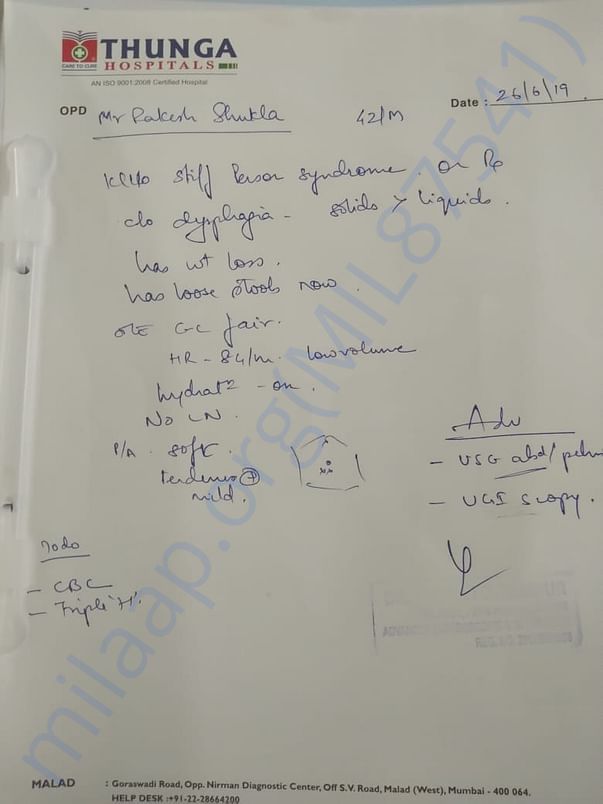 THUNGA
HOSPITALS
CARE TO CURE
AN ISO 9001:2008 Certified Hospital
OPD Mr Rakesh Shukla 42/M Date : 26/6/19
K/C/o stiff Person syndrome. on Rx
c/o dysphagia - solids > liquids.
has wt loss.
has loose stools now.
O/E GC fair.
HR - 84/m. low volume
hydratn
No LN.
P/A. soft.
tenderness +
mild.
Adv
- USG abd/pelvi
- UGI scopy.
Todo
- CBC
- Triple 'H'.
milaap.org(MIL87541)
MALAD : Goraswadi Road, Opp. Nirman Diagnostic Center, Off S.V. Road, Malad (West), Mumbai - 400 064.
HELP DESK :+91-22-28664200